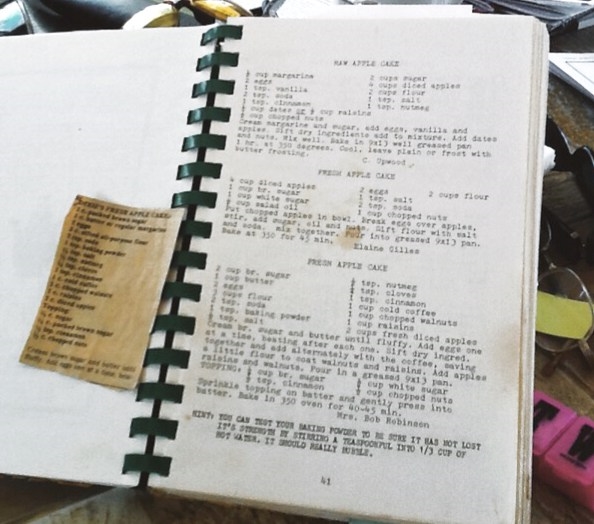 RAW APPLE CAKE
cup margarine 2 cups sugar
2 eggs 4 cups diced apples
1 tsp. vanilla 2 cups flour
2 tsp. soda 1 tsp. salt
1 tsp. cinnamon 1 tsp. nutmeg
cup dates or cup raisins
cup chopped nuts
Cream margarine and sugar, add eggs, vanilla and
apples. Sift dry ingredients add to mixture. Add dates
and nuts. Mix well. Bake in 9X13 well greased pan
1 hr. at 350 degrees. Cool, leave plain or frost with
butter frosting.
C. Upwood
FRESH APPLE CAKE
4 cup diced apples 2 eggs 2 cups flour
1 cup br. sugar 1 tsp. salt
1 cup white sugar 2 tsp. soda
cup salad oil 1 cup chopped nuts
Put chopped apples in bowl. Break eggs over apples,
stir. add sugar, oil and nuts. Sift flour with salt
and soda. mix together. Pour into greased 9X13 pan.
Bake at 350 for 45 min.
Elaine Gilles
FRESH APPLE CAKE
2 cup br. sugar tsp. nutmeg
1 cup butter tsp. cloves
2 eggs 1 tsp. cinnamon
3 cups flour 1 cup cold coffee
2 tsp. soda 1 cup chopped walnuts
1 tsp. baking powder 1 cup raisins
tsp. salt 2 cups fresh diced apples
Cream br. sugar and butter until fluffy. Add eggs one
at a time, beating after each one. Sift dry ingred.
together and add alternately with the coffee, saving
a little flour to coat walnuts and raisins. Add apples
raisins and walnuts. Pour in a greased 9X13 pan.
TOPPING: cup br. sugar cup white sugar
tsp. cinnamon cup chopped nuts
Sprinkle topping on batter and gently press into
batter. Bake in 350 oven for 40-45 min.
Mrs. Bob Robinson
HINT: YOU CAN TEST YOUR BAKING POWDER TO BE SURE IT HAS NOT LOST
IT'S STRENGTH BY STIRRING A TEASPOONFUL INTO 1/3 CUP OF
HOT WATER. IT SHOULD REALLY BUBBLE.
41
FRESH APPLE CAKE
packed brown sugar
butter or regular margarine
eggs
all-purpose flour
soda
baking powder
salt
nutmeg
cloves
cinnamon
cold coffee
chopped walnuts
raisins
packed brown sugar
cinnamon
chopped nuts
T W